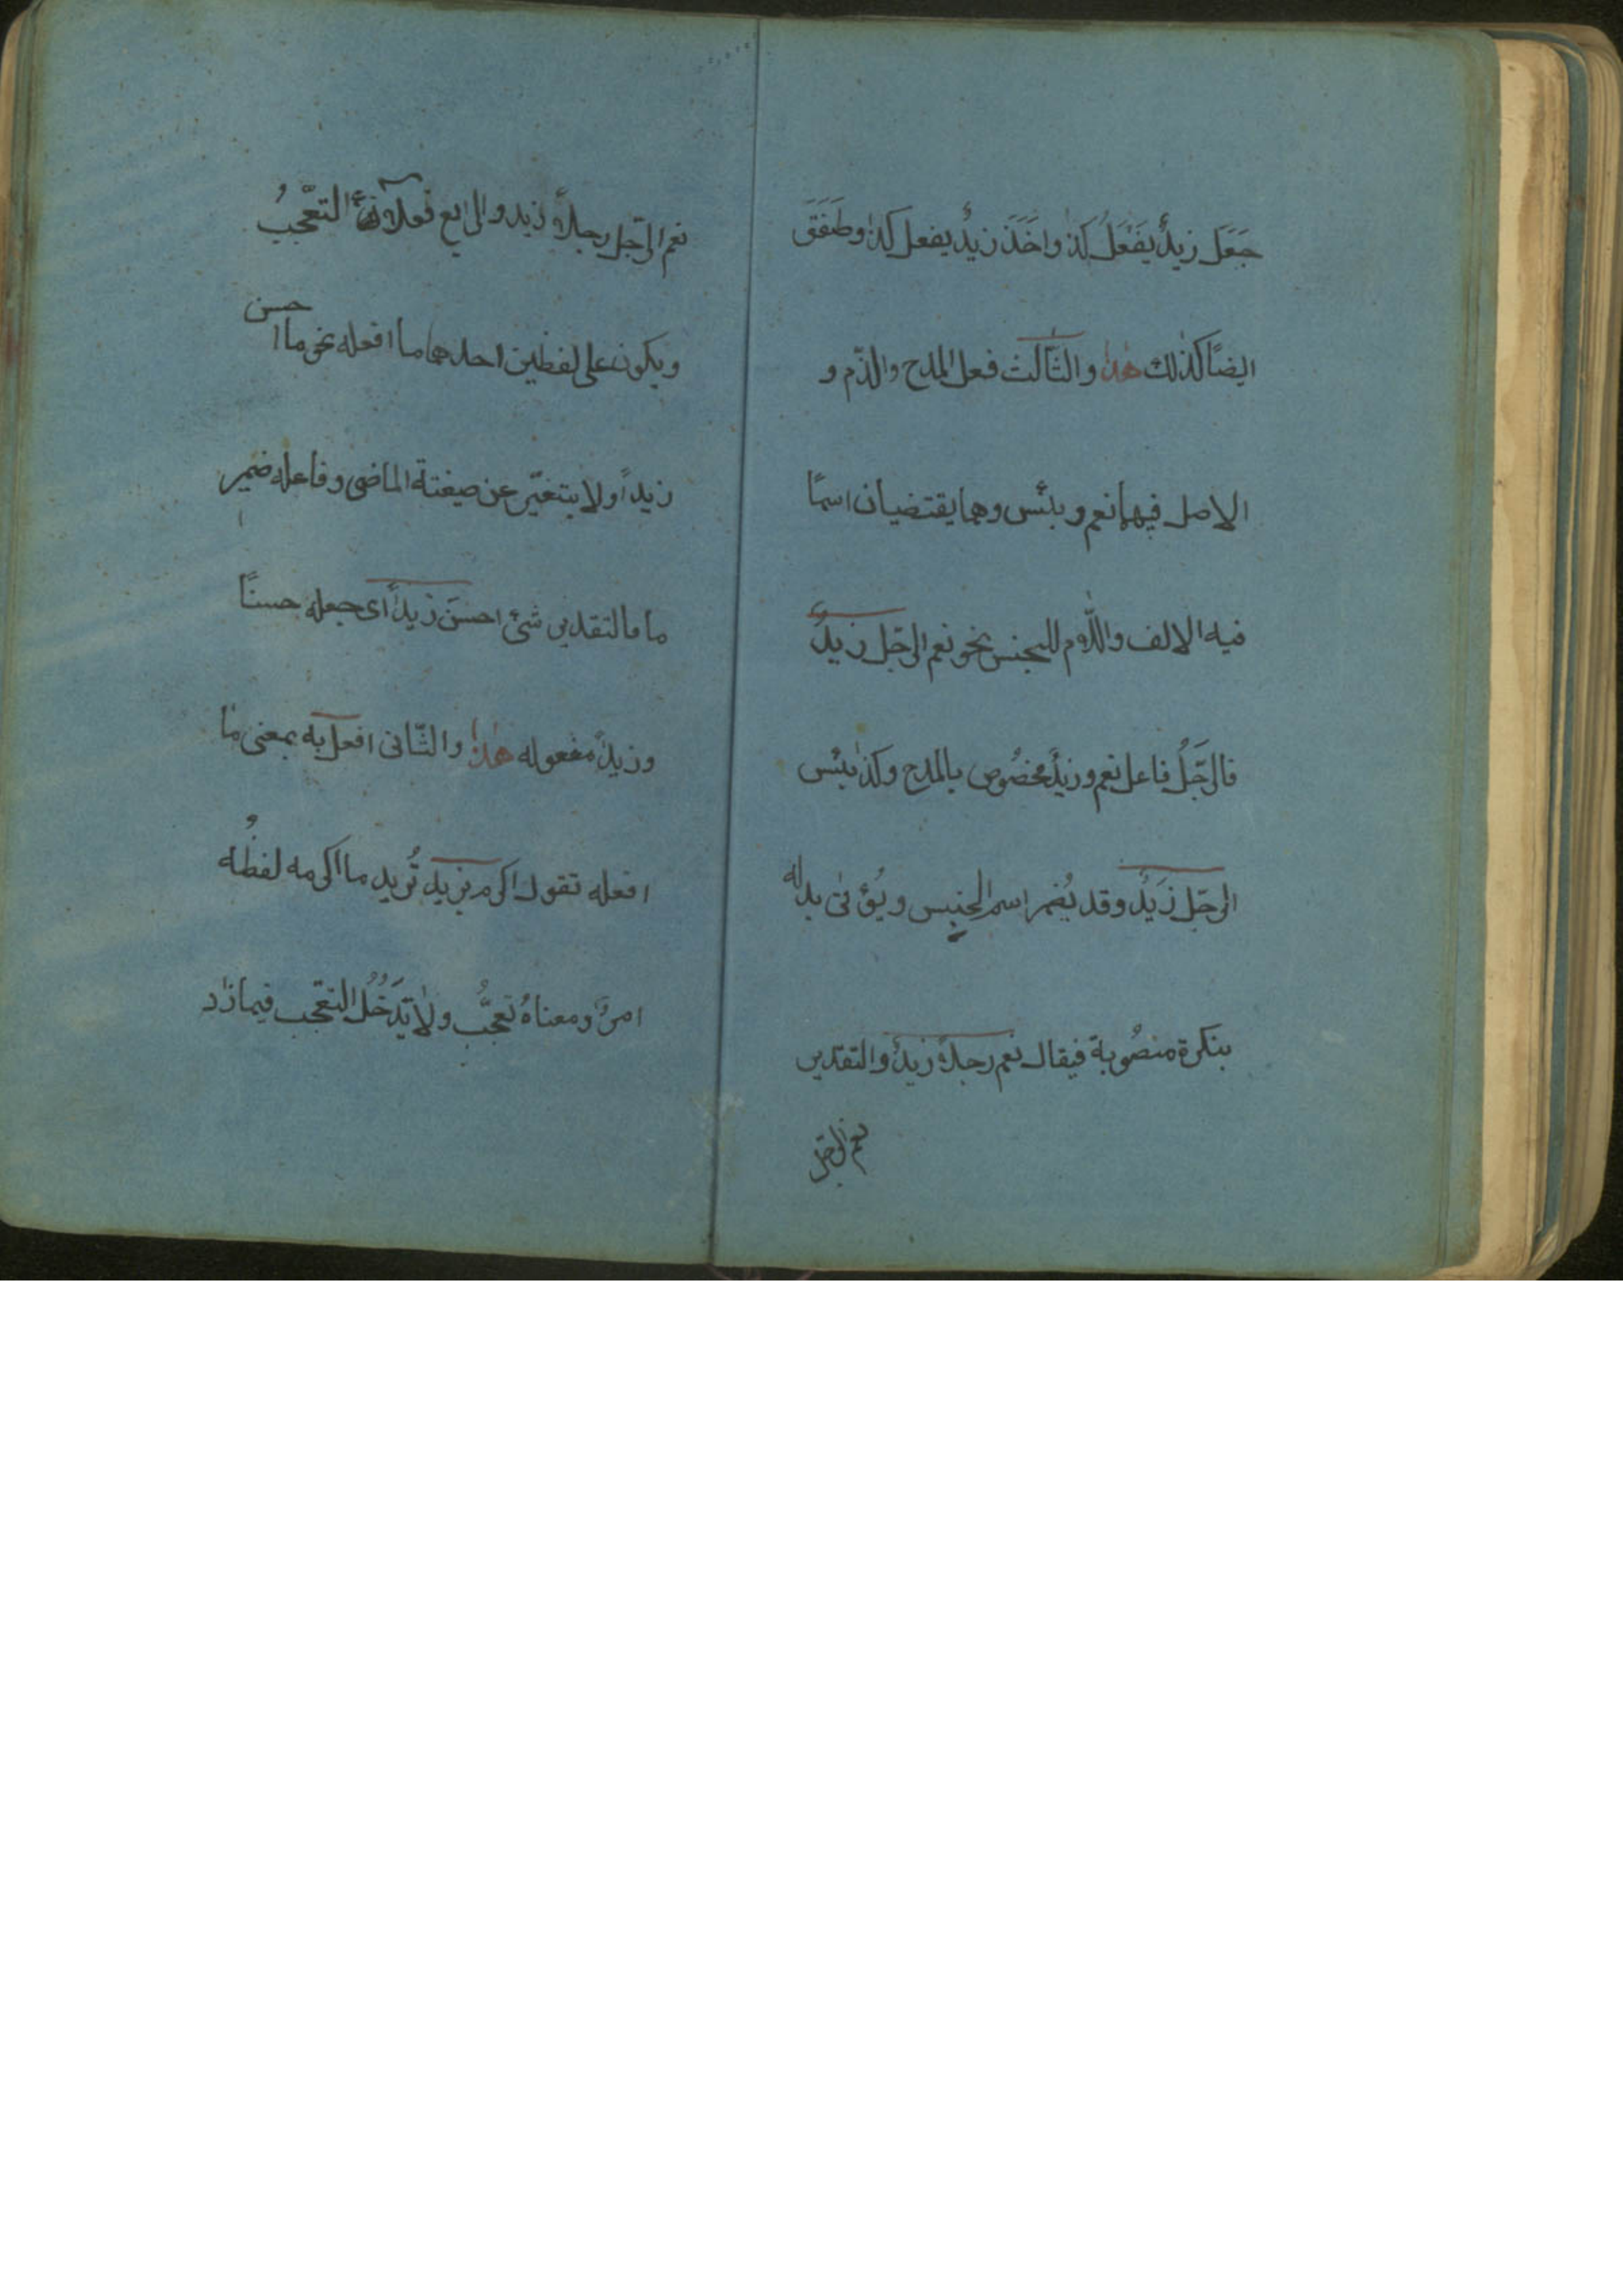 جَعَلَ زيدٌ يَفْعَلُ كذا واخَذَ زيدٌ يفعل كذا وطَفَقَ
ايضًا كذلك هذا والثّالث فعل المدح والذّم و
الاصل فيهما نعم وبئس وهما يقتضيان اسمًا
فيه الالف واللّام للجنس نحو نعم الرّجل زيدٌ
فالرّجَلُ فاعل نعم وزيدٌ مخصُوص بالمدح وكذا بئس
الرجّل زَيدٌ وقد يُضمر اسم الجنس ويُؤتى بدله
بنكرة منصُوبة فيقال نعم رجلاً زيدٌ والتقدير
نعم الرّجل
نعم الرّجل رجلاً زيد والرابع فعلا التعّجّبُ
ويكون على لفظين احدهما ما افعله نحو ما احسن
زيداً ولا يتغيّر عن صيغتة الماضى وفاعله ضمير
ما فالتقدير شئ احسنَ زيداً اى جعله حسنًا
وزيداً مفعوله هذا والثّانى افعل به بمعنى ما
افعله تقول اكرم بزيدٍ تُريد ما اكرمه لفظُه
امرٌ ومعناهُ تعجّبٌ ولا يَدخُلُ التعّجب فيما زاد